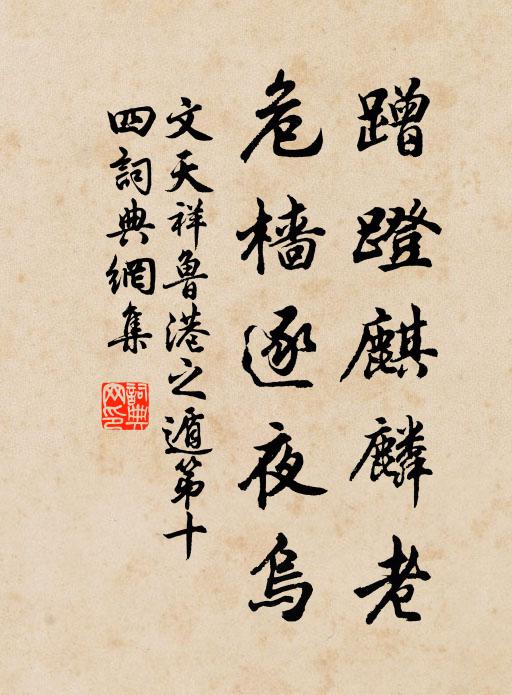 蹭蹬麒麟老
危檣逐夜烏
文天祥魯港之遁第十
四詞典網集
詞典
网印